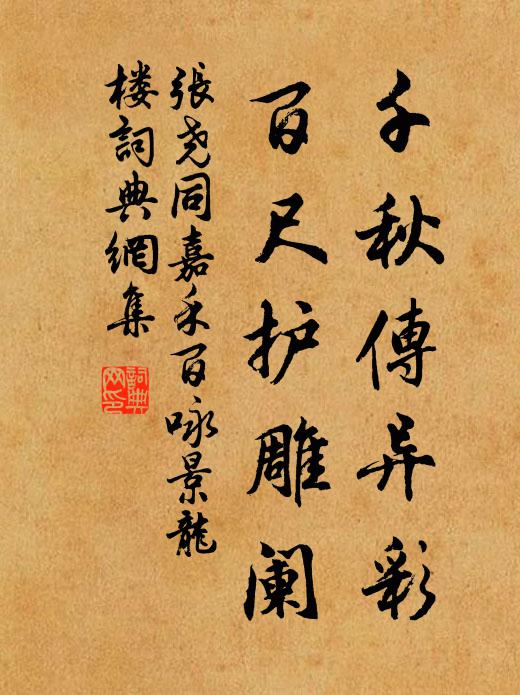 千秋傳异彩
百尺护雕阑
張尧同嘉禾百咏景龍
楼詞典網集
詞典网印